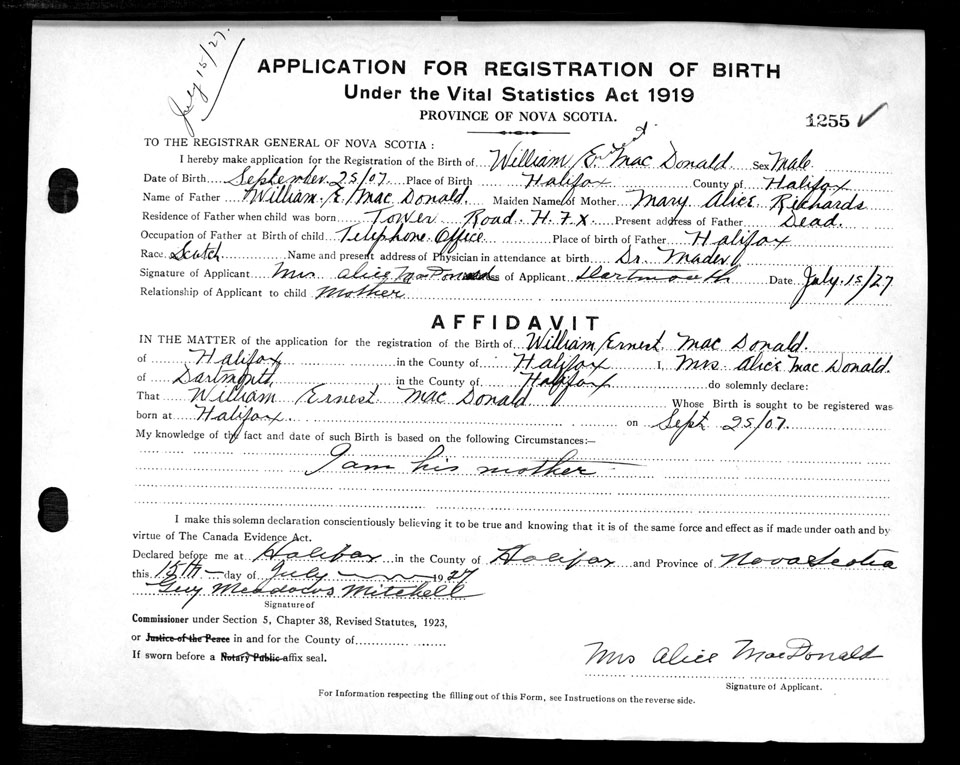 July 15/27.
APPLICATION FOR REGISTRATION OF BIRTH
Under the Vital Statistics Act 1919
PROVINCE OF NOVA SCOTIA.
1255 ✓
TO THE REGISTRAR GENERAL OF NOVA SCOTIA:
I hereby make application for the Registration of the Birth of William E. Mac Donald. Sex Male
Date of Birth September 25/07. Place of Birth Halifax County of Halifax
Name of Father William. E. Mac Donald. Maiden Name of Mother Mary Alice Richards
Residence of Father when child was born Tower Road. H.F.X. Present address of Father Dead.
Occupation of Father at Birth of child Telephone Office Place of birth of Father Halifax
Race. Scotch Name and present address of Physician in attendance at birth Dr. Mader
Signature of Applicant Mrs Alice MacDonald of Applicant Dartmouth Date July. 15/27
Relationship of Applicant to child Mother
AFFIDAVIT
IN THE MATTER of the application for the registration of the Birth of William Ernest Mac Donald.
of Halifax in the County of Halifax I, Mrs Alice Mac Donald.
of Dartmouth, in the County of Halifax do solemnly declare:
That William Ernest Mac Donald Whose Birth is sought to be registered was
born at Halifax. on Sept 25/07.
My knowledge of the fact and date of such Birth is based on the following Circumstances:—
I am his mother
I make this solemn declaration conscientiously believing it to be true and knowing that it is of the same force and effect as if made under oath and by
virtue of The Canada Evidence Act.
Declared before me at Halifax in the County of Halifax and Province of Nova Scotia
this 15th day of July 1927
Guy Meadows Mitchell
Signature of
Commissioner under Section 5, Chapter 38, Revised Statutes, 1923,
or Justice of the Peace in and for the County of
If sworn before a Notary Public affix seal.
Mrs Alice MacDonald
Signature of Applicant.
For Information respecting the filling out of this Form, see Instructions on the reverse side.